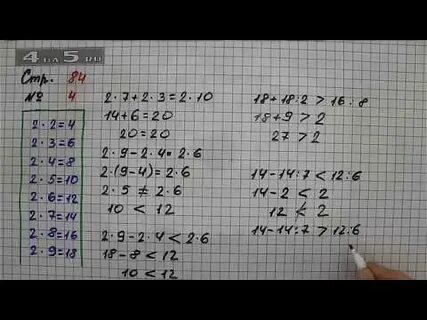 4 НА 5.RU
Стр. 84
№ 4
2·2=4
2·3=6
2·4=8
2·5=10
2·6=12
2·7=14
2·8=16
2·9=18
2·7+2·3=2·10
14+6=20
20=20
2·9-2·4=2·6
2·(9-4)=2·6
2·5≠2·6
10<12
2·9-2·4<2·6
18-8<12
10<12
18+18:2>16:8
18+9>2
27>2
14-14:7<12:6
14-2<2
12≮2
14-14:7>12:6